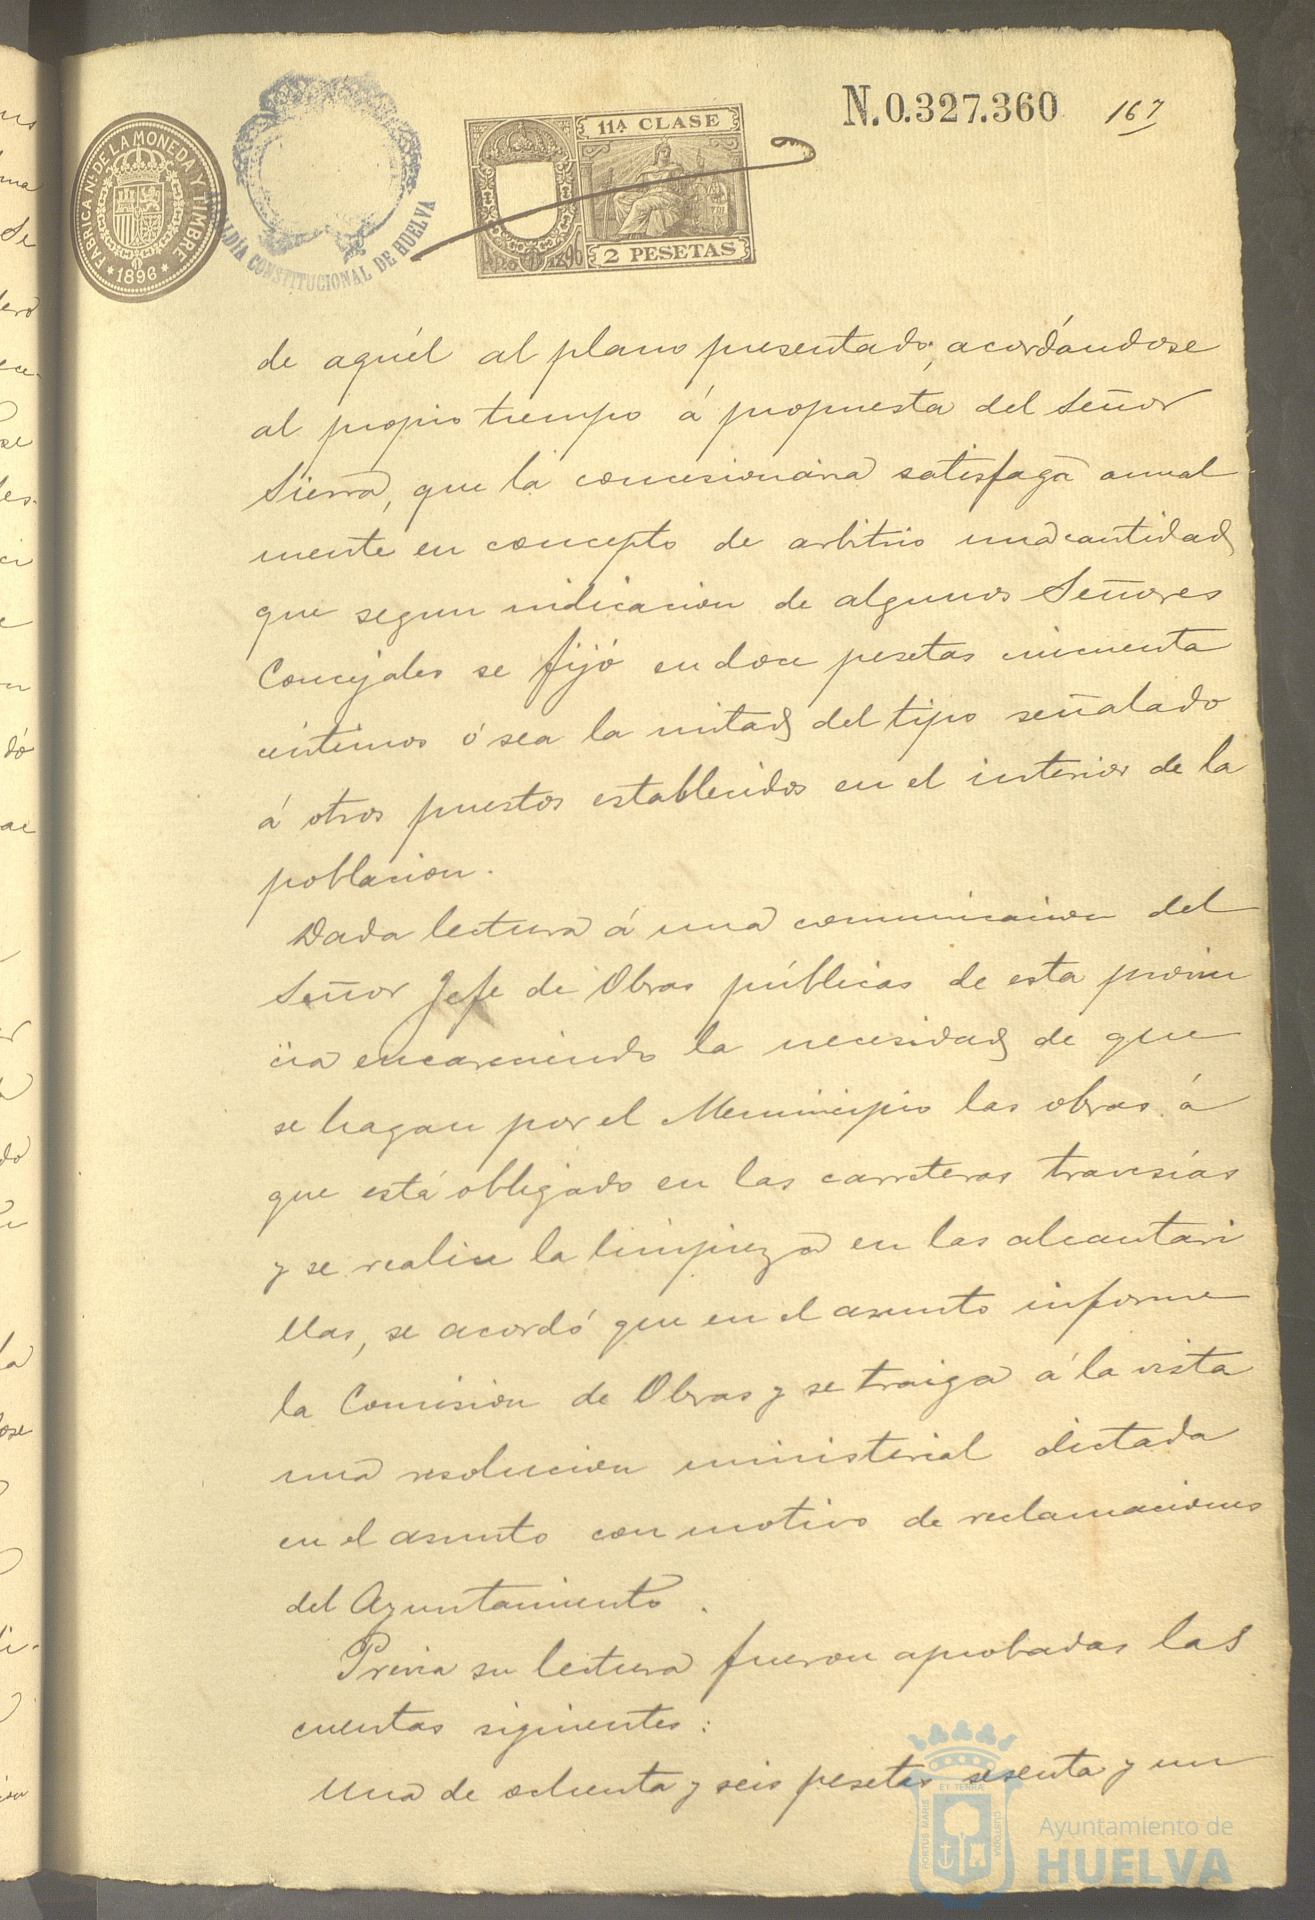 N.0.327.360
167
FABRICA Nˡ DE LA MONEDA Y TIMBRE
* 1896 *
ALCALDÍA CONSTITUCIONAL DE HUELVA
11ª CLASE
2 PESETAS
de aquél al plano presentado; acordándose
al propio tiempo á propuesta del Señor
Sierra, que la concesionaria satisfaga anual
mente en concepto de arbitrio una cantidad
que segun indicacion de algunos Señores
Concejales se fijó en doce pesetas cincuenta
céntimos ó sea la mitad del tipo señalado
á otros puestos establecidos en el interior de la
poblacion.
Dada lectura á una comunicacion del
Señor Jefe de Obras públicas de esta provin
cia encareciendo la necesidad de que
se hagan por el Municipio las obras á
que está obligado en las carreteras travesías
y se realice la limpieza en las alcantari
llas, se acordó que en el asunto informe
la Comision de Obras y se traiga á la vista
una resolucion ministerial dictada
en el asunto con motivo de reclamaciones
del Ayuntamiento.
Previa su lectura fueron aprobadas las
cuentas siguientes:
Una de ochenta y seis pesetas sesenta y un
PORTUS MARIS ET TERRÆ CUSTODIA
Ayuntamiento de
HUELVA